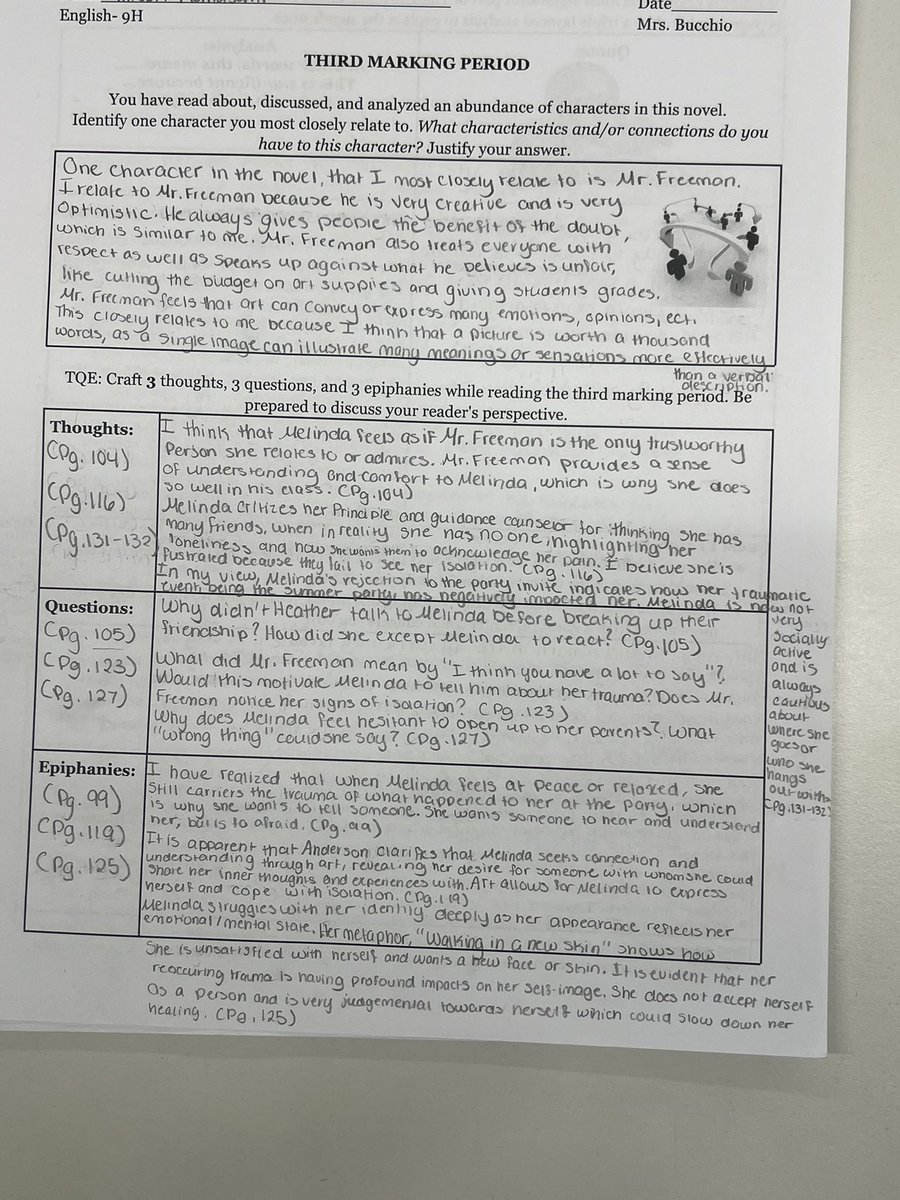 Date
English- 9H
Mrs. Bucchio
THIRD MARKING PERIOD
You have read about, discussed, and analyzed an abundance of characters in this novel.
Identify one character you most closely relate to. What characteristics and/or connections do you
have to this character? Justify your answer.
One character in the novel, that I most closely relate to is Mr. Freeman.
I relate to Mr. Freeman because he is very creative and is very
Optimistic. He always gives people the benefit of the doubt,
which is similar to me. Mr. Freeman also treats everyone with
respect as well as speaks up against what he believes is unfair,
like cutting the budget on art supplies and giving students grades.
Mr. Freeman feels that art can convey or express many emotions, opinions, ect.
This closely relates to me because I think that a picture is worth a thousand
words, as a single image can illustrate many meanings or sensations more effectively
than a verbal
description.
TQE: Craft 3 thoughts, 3 questions, and 3 epiphanies while reading the third marking period. Be
prepared to discuss your reader's perspective.
Thoughts:
(Pg. 104)
(Pg. 116)
(Pg. 131-132)
I think that Melinda feels as if Mr. Freeman is the only trustworthy
Person she relates to or admires. Mr. Freeman provides a sense
of understanding and comfort to Melinda, which is why she does
so well in his class. (Pg. 104)
Melinda critizes her Principle and guidance counselor for thinking she has
many friends, when in reality she has no one, highlighting her
loneliness and how she wants them to acknowledge her pain. I believe she is
fustraled because they fail to see her isolation. (Pg. 116)
In my view, Melinda's rejection to the party invite indicates how her traumatic
event, being the summer party, has negatively impacted her. Melinda is now not
very
socially
active
and is
always
cautious
about
where she
goes or
who she
hangs
out with
(Pg. 131-132)
Questions:
(Pg. 105)
(Pg. 123)
(Pg. 127)
Why didn't Heather talk to Melinda before breaking up their
friendship? How did she except Melinda to react? (Pg. 105)
What did Mr. Freeman mean by "I think you have a lot to say"?
Would this motivate Melinda to tell him about her trauma? Does Mr.
Freeman notice her signs of isolation? (Pg. 123)
Why does Melinda feel hesitant to open up to her parents? What
"wrong thing" could she say? (Pg. 127)
Epiphanies:
(Pg. 99)
(Pg. 119)
(Pg. 125)
I have realized that when Melinda feels at peace or relaxed, she
still carriers the trauma of what happened to her at the party, which
is why she wants to tell someone. She wants someone to hear and understand
her, but is to afraid. (Pg. 99)
It is apparent that Anderson clarifies that Melinda seeks connection and
understanding through art, revealing her desire for someone with whom she could
share her inner thoughts and experiences with. Art allows for Melinda to express
herself and cope with isolation. (Pg. 119)
Melinda struggles with her identity deeply as her appearance reflects her
emotional/mental state. Her metaphor, "Walking in a new skin" shows how
She is unsatisfied with herself and wants a new face or skin. It is evident that her
reoccuring trauma is having profound impacts on her self-image. She does not accept herself
as a person and is very judgemental towards herself which could slow down her
healing. (Pg. 125)